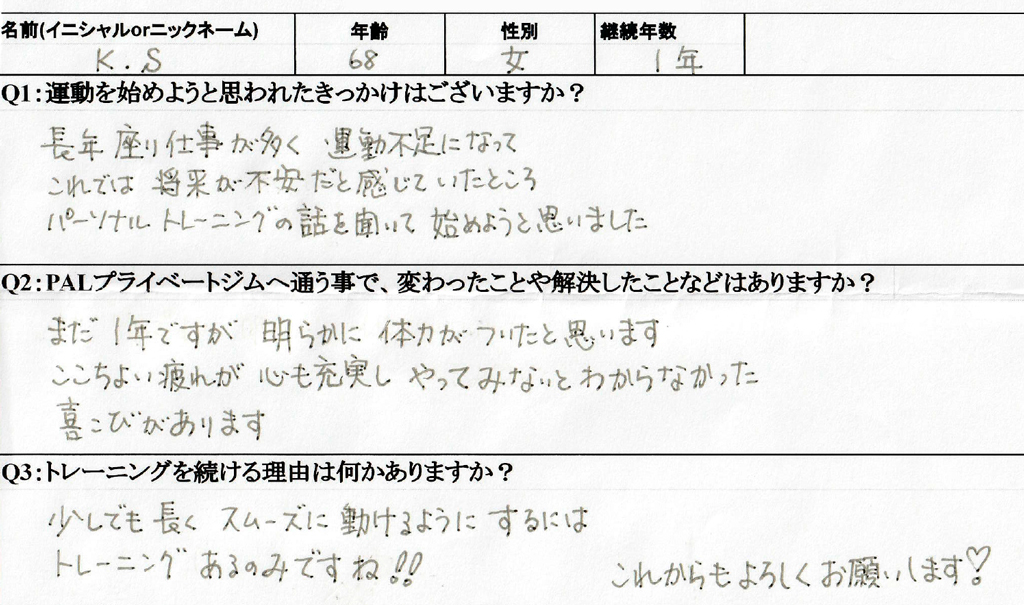 名前(イニシャルorニックネーム) 年齢 性別 継続年数
K.S 68 女 1年
Q1:運動を始めようと思われたきっかけはございますか？
長年 座り仕事が多く 運動不足になって
これでは 将来が不安だと感じていたところ
パーソナルトレーニングの話を聞いて 始めようと思いました
Q2:PALプライベートジムへ通う事で、変わったことや解決したことなどはありますか？
まだ 1年ですが 明らかに 体力がついたと思います
ここちよい疲れが 心も充実し やってみないとわからなかった
喜こびがあります
Q3:トレーニングを続ける理由は何かありますか？
少しでも長く スムーズに動けるようにするには
トレーニング あるのみですね!!
これからもよろしくお願いします♡